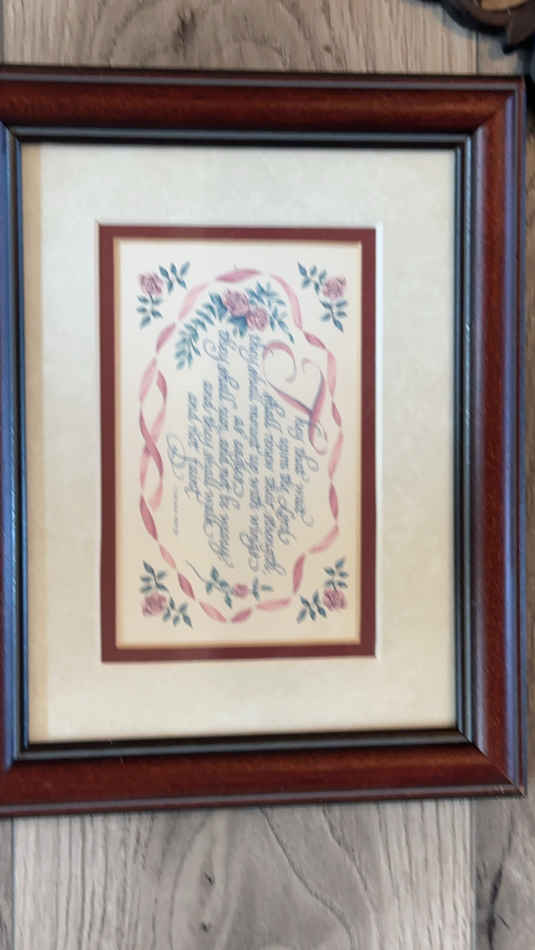 They that wait
upon the Lord
shall renew their strength;
they shall mount up with wings
as eagles;
they shall run, and not be weary;
and they shall walk,
and not faint.